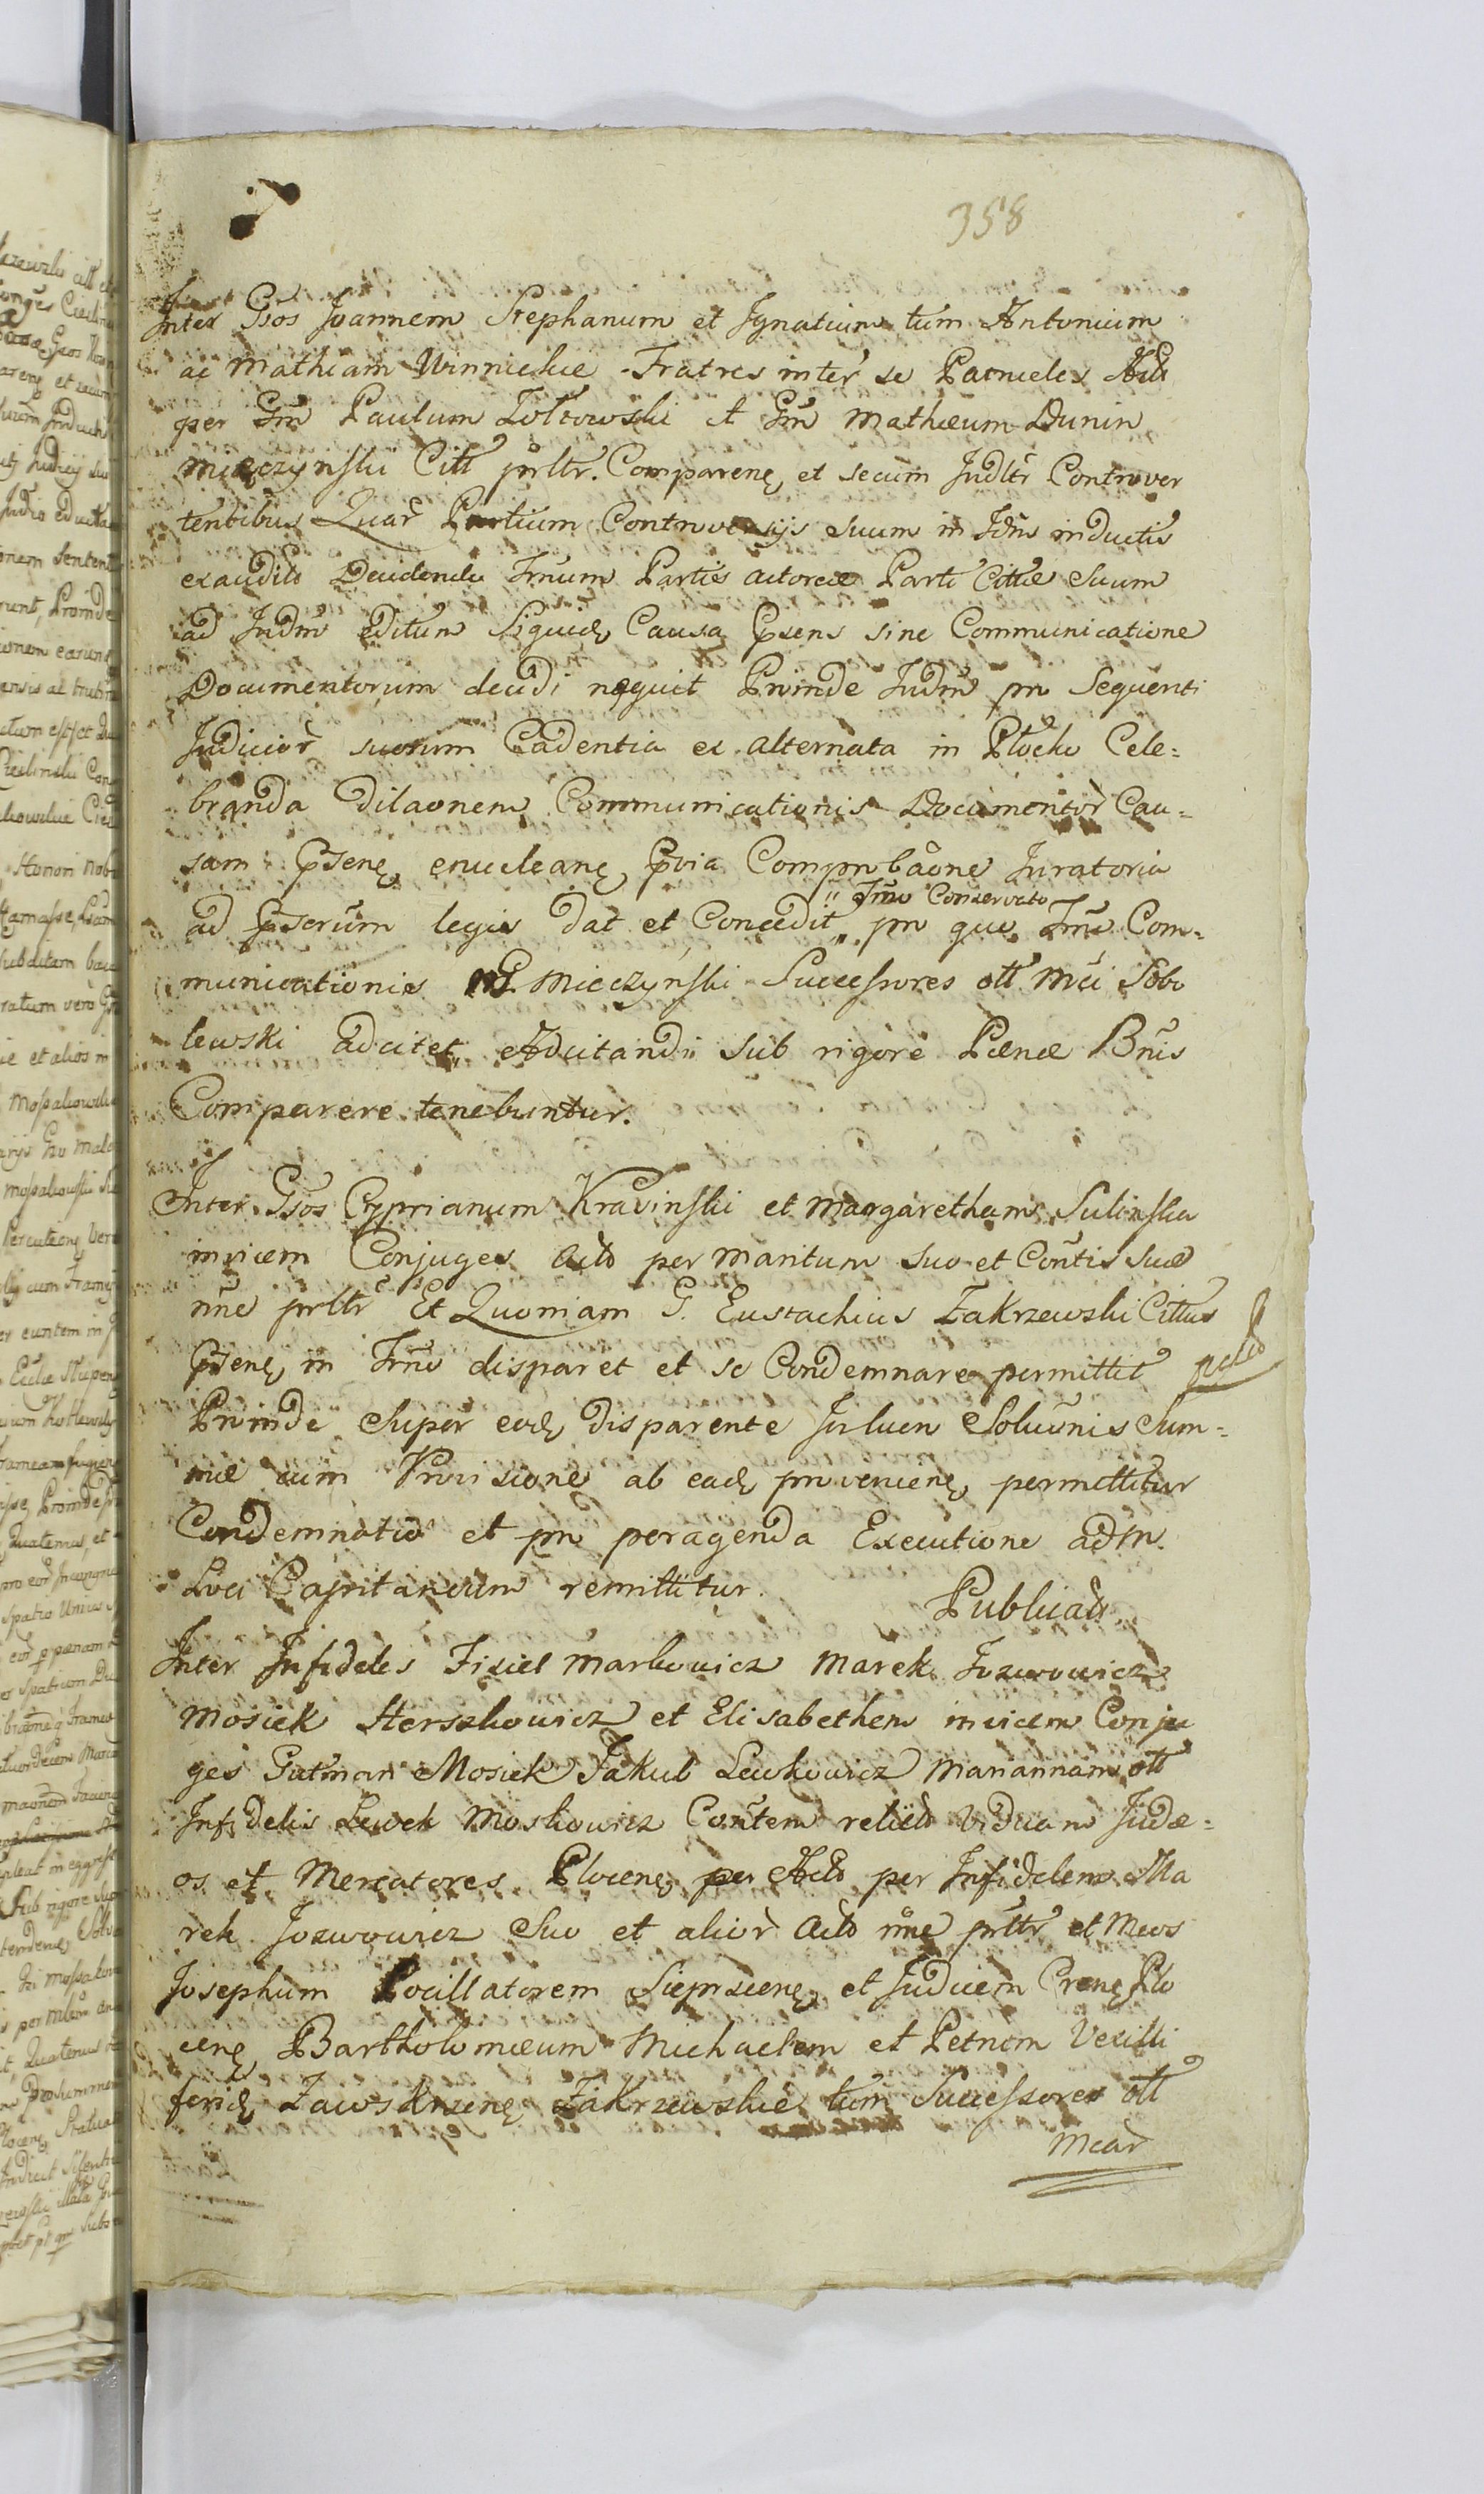 358
Inter Gsos Joannem Stephanum et Ignatium tum Antonium
ac Mathiam Winnickie Fratres inter se Patrueles
per Gm Paulum Zoltowski et Gm Mathæum Dunin
Mięczynski Citt prltr. Comparenę et secum Judltr Controver
tentibus Quar Partium Controversijs suum in Jdm inductis
exaudito Decidendo Trnum Partis actoreæ Parti Cittæ Suum
ad Judm editum Siquidę Causa Psens sine Communicatione
Documentorum decidi nequit Proinde Judm pro Sequenti
Judicior suorum Cadentia ex alternata in Płocko Cele=
branda dilaonem Communicationis Documentor Cau=
sam Psenę enucleanę Pvia Comprobaone Juratoria
ad Pserum legis dat et Concedit „ Trno Conservato „ pro quo Trno Com=
municationis G. Mieczynski Successores ott Mci Sobo
lewski adcitet Adcitandi sub rigore Pænæ Bnis
Comparere tenebuntur.
Inter Gsos Cyprianum Kravinski et Margaretham Sulinska
invicem Conjuges Acto per Maritum suo et Contis suæ
nne prltr Et Quoniam G. Eustachius Zakrzewski Cittus
Psenę in Trno disparet et se Condemnare permittit
Proinde super eodę disparente In luen Soluõnis Sum=
mæ cum Provisione ab eadę provenienę permittitur
Condemnatio et pro peragenda Executione ad m.
Loci Capitaneum remittitur.
Publicat
Inter Infideles Fisiel Markowicz Marek Jozwowicz
Mosiek Herszkowicz et Elisabethem invicem Conju
ges Gutman Mosiek Jakub Lewkowicz Mariannam ott
Infidelis Lewek Moskowicz Contem relict Viduam Judæ=
os et Mercatores Plocenę per Acto per Infidelem Ma
rek Jozwowicz Suo et alior Acto nne prltr et Mcos
Josephum Pocillatorem Sieprscenę et Judicem Crenę Plo
cenę Bartholomæum Michaelem et Petrum Vexilli
feridę Zawskrzenę Zakrzewskie tum Successores ott
Mcar